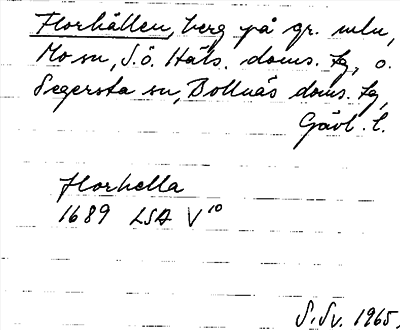 Florhällen, berg på gr. mln,
Mo sn, S.ö. Häls. doms. tg, o.
Segersta sn, Bollnäs doms. tg,
Gävl. l.
Florhella
1689 LSA V¹⁰
S. Sv. 1965.